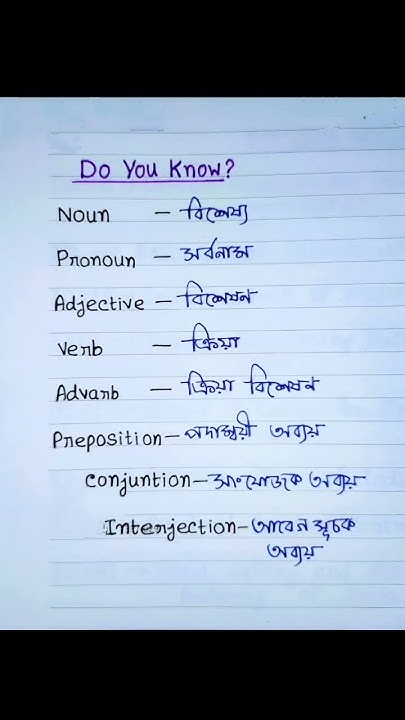 Do You Know?
Noun — বিশেষ্য
Pronoun — সর্বনাম
Adjective — বিশেষন
Verb — ক্রিয়া
Advarb — ক্রিয়া বিশেষন
Preposition — পদান্বয়ী অব্যয়
Conjuntion — সংযোজক অব্যয়
Interjection — আবেগ সূচক
অব্যয়